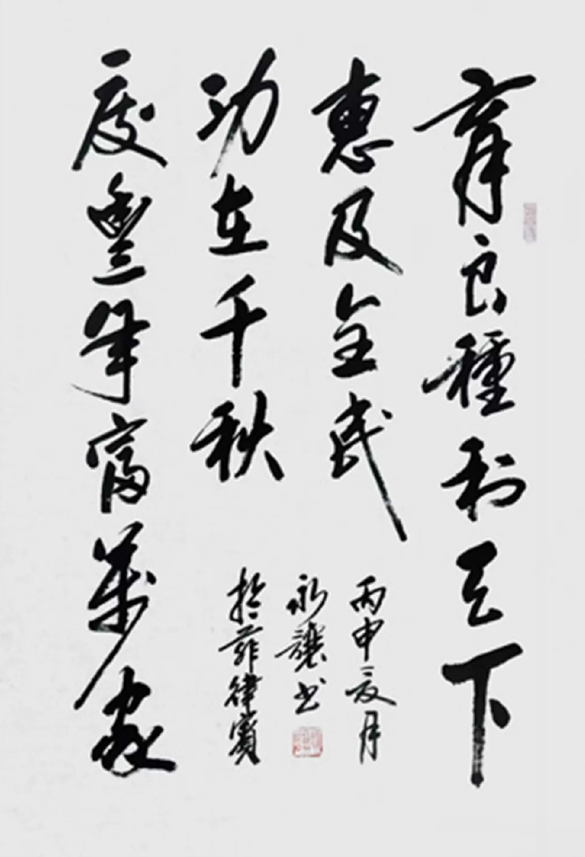 育良種利天下
惠及全民
功在千秋
慶豐年富萬家
丙申夏月
永讓书
於菲律賓